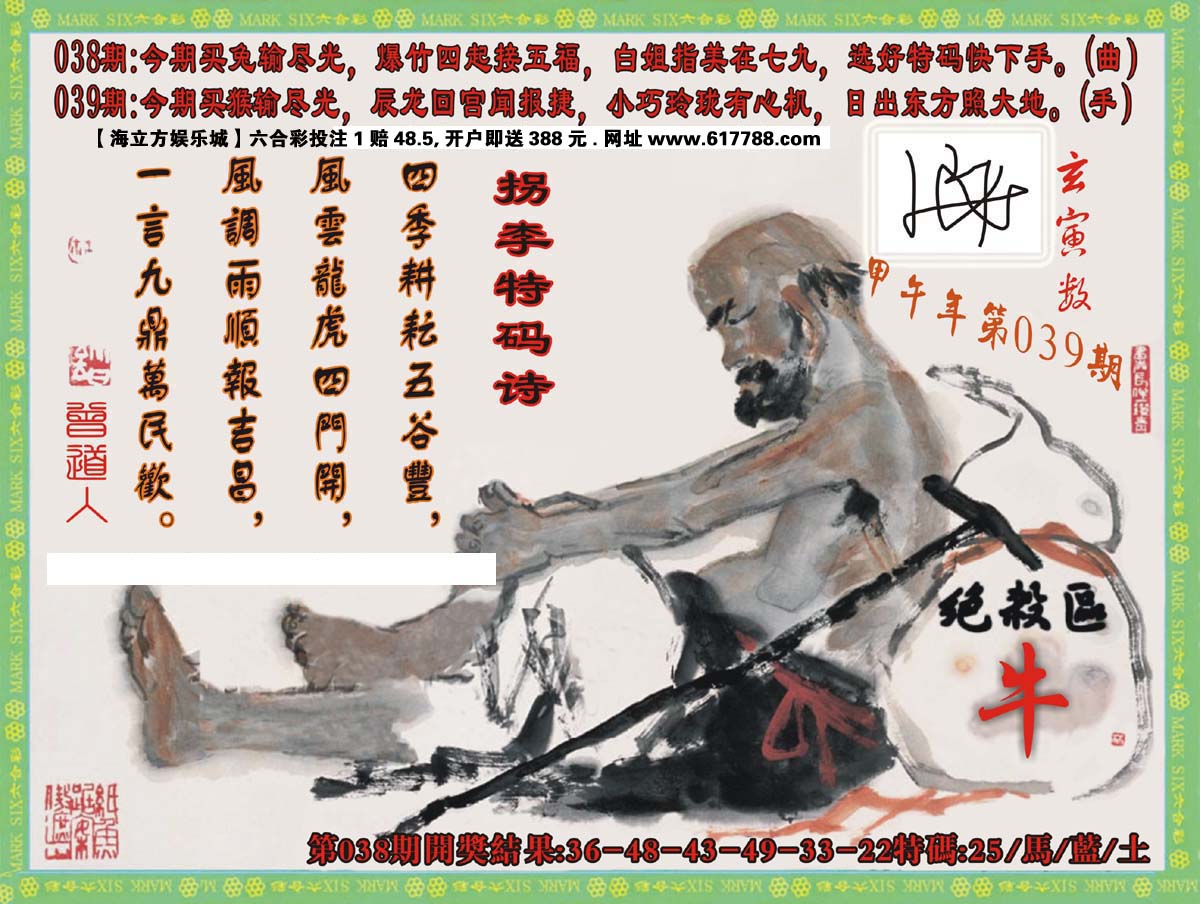 MARK SIX六合彩
038期:今期买兔输尽光，爆竹四起接五福，白姐指美在七九，选好特码快下手。(曲)
039期:今期买猴输尽光，辰龙回宫闻报捷，小巧玲珑有心机，日出东方照大地。(手)
【海立方娱乐城】六合彩投注1赔48.5,开户即送388元.网址www.617788.com
玄寅数
甲午年第039期
拐李特码诗
四季耕耘五谷豐，
風雲龍虎四門開，
風調雨順報吉昌，
一言九鼎萬民歡。
曾道人
绝殺區
牛
第038期開獎結果:36-48-43-49-33-22特碼:25/馬/藍/土